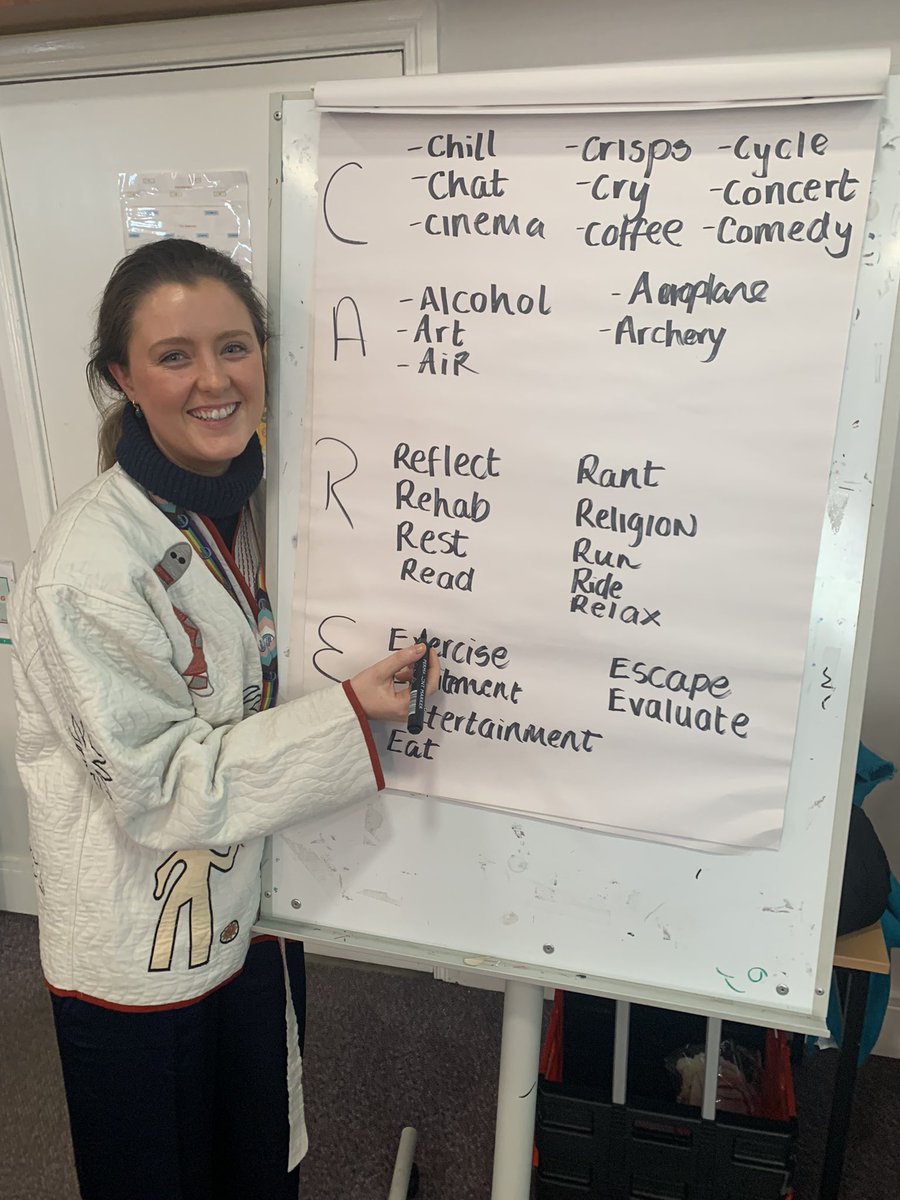 C
-Chill
-Chat
-cinema
-Crisps
-Cry
-coffee
-Cycle
-Concert
-Comedy
A
-Alcohol
-Art
-AiR
-Aeroplane
-Archery
R
Reflect
Rehab
Rest
Read
Rant
Religion
Run
Ride
Relax
E
Exercise
Eat
Escape
Evaluate